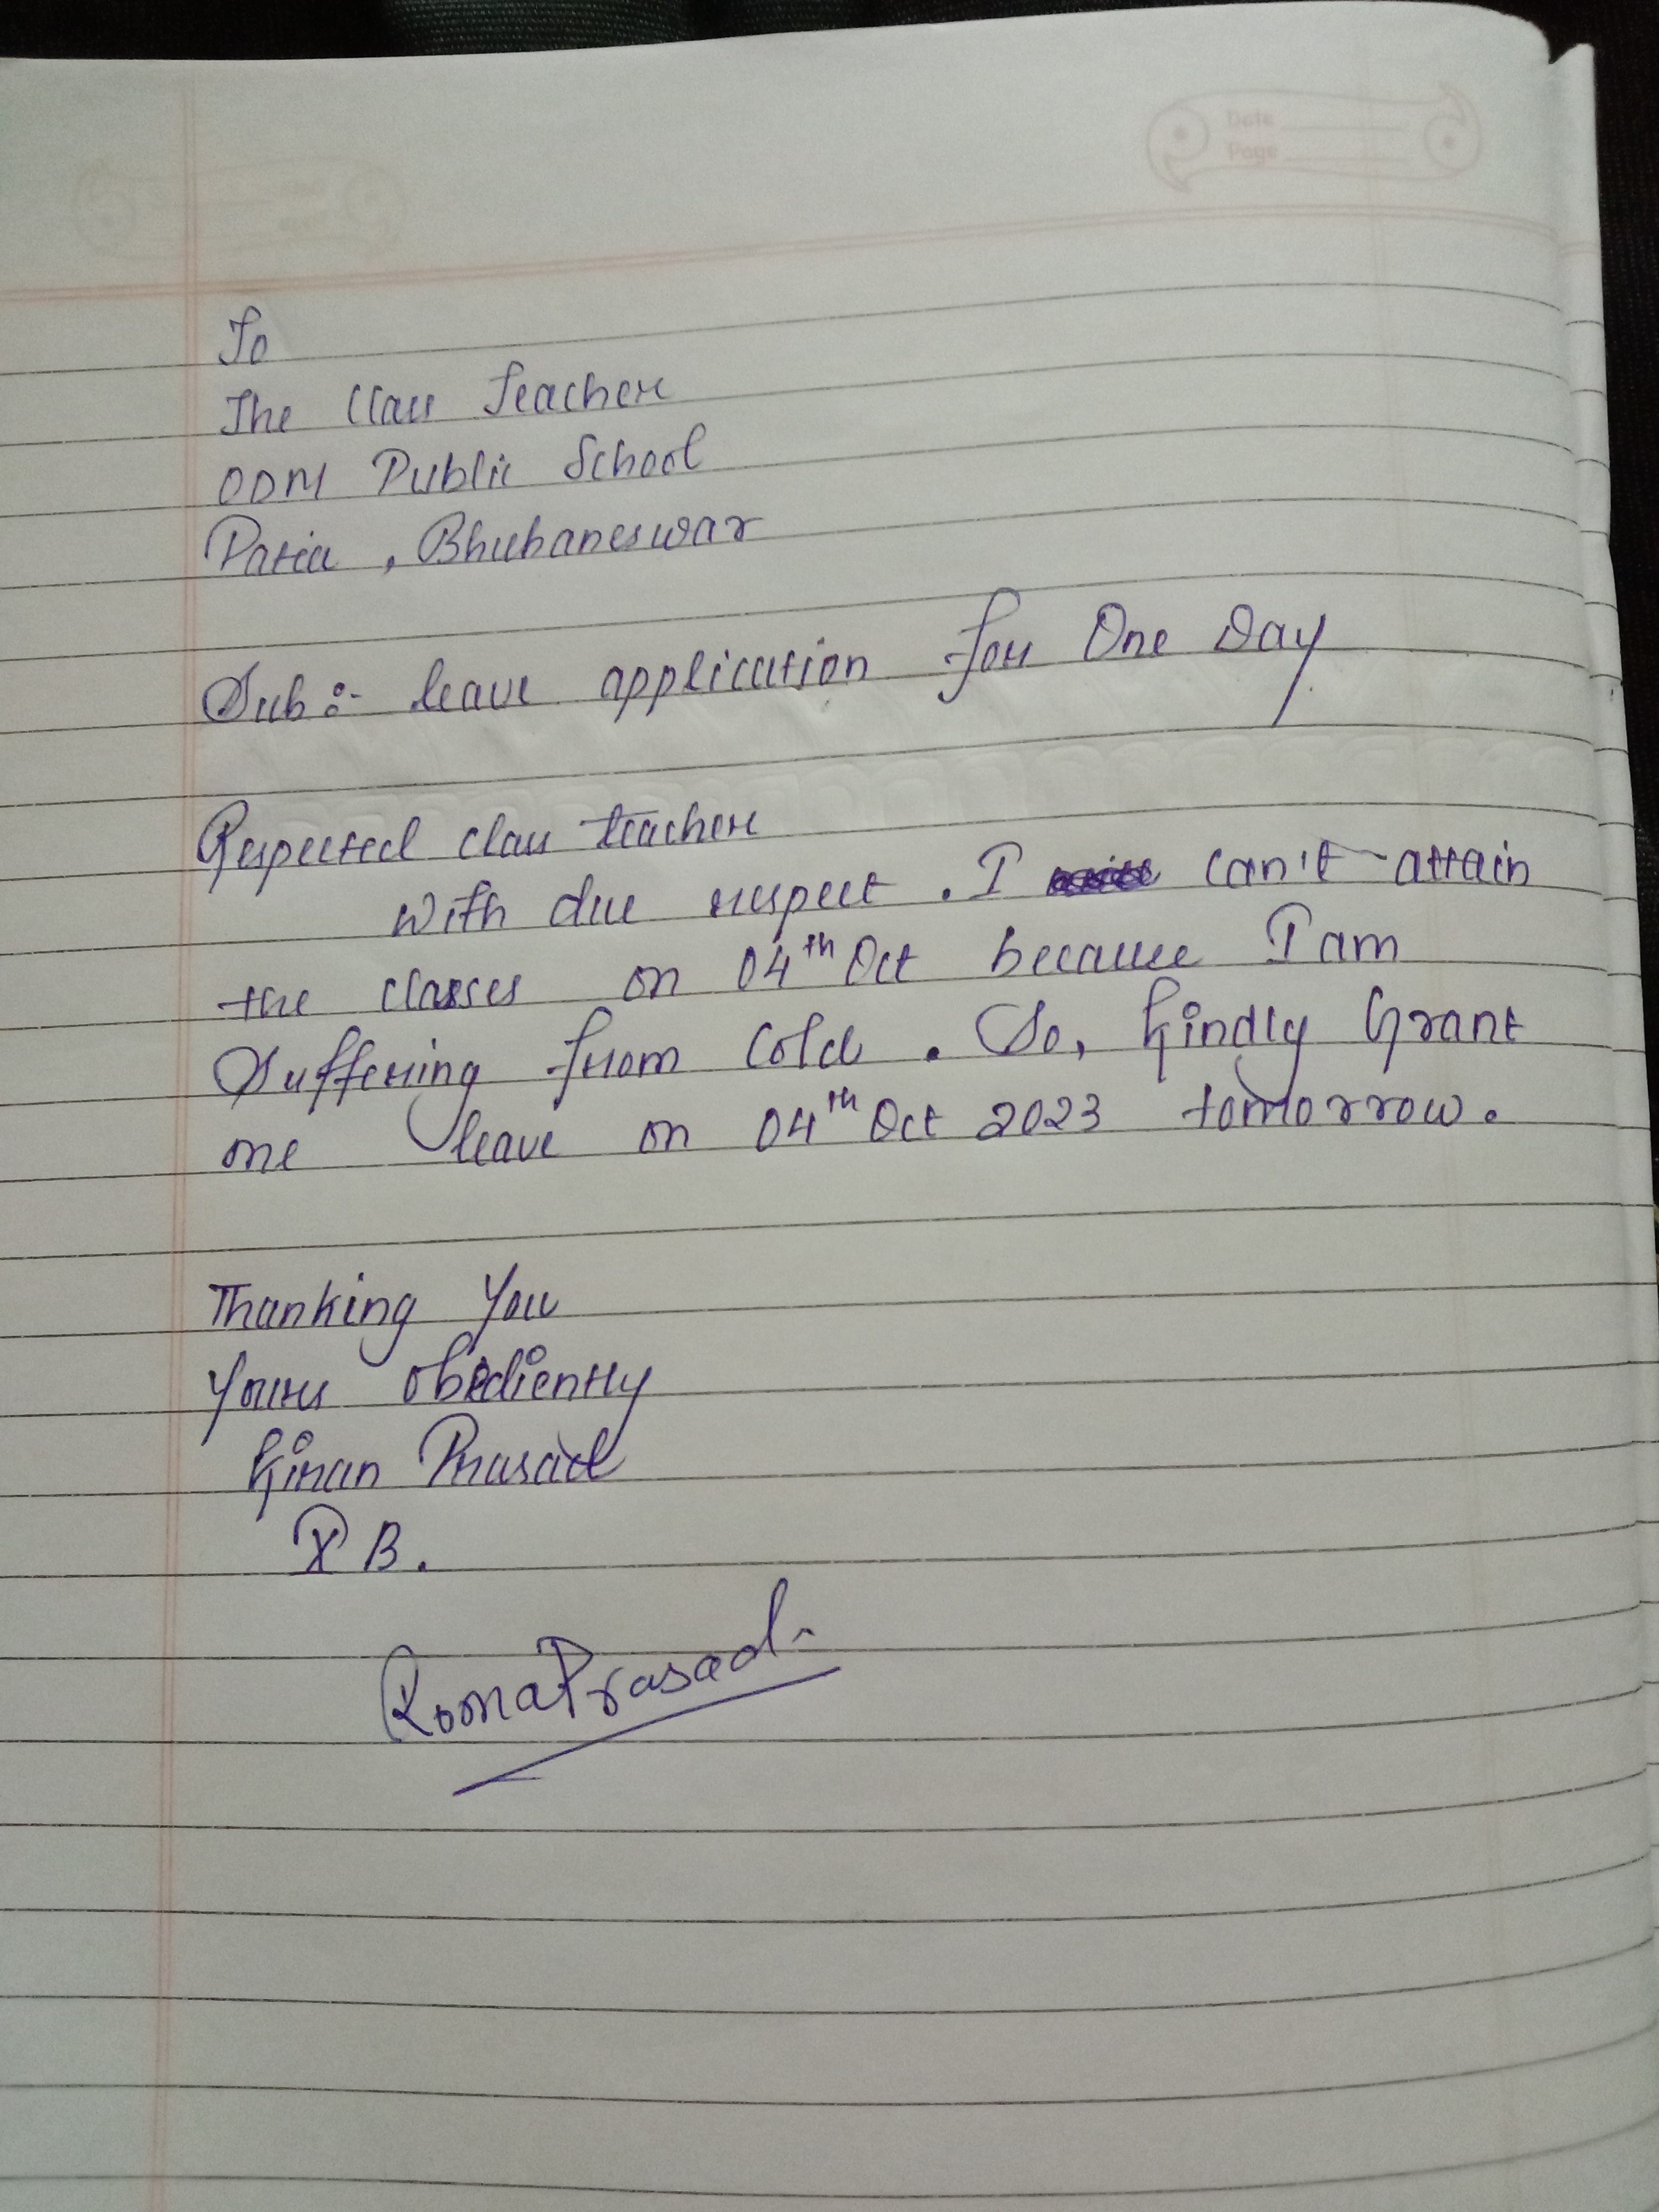 Date
Page
To
The Class Teacher
ODM Public School
Patia , Bhubaneswar
Sub :- leave application for One Day
Respected class teacher
With due respect . I can't attain
the classes on 04th Oct because I am
Suffering from Cold . So, Kindly Grant
me leave on 04th Oct 2023 tomorrow.
Thanking You
Yours obediently
Kiran Prasad
X B.
Roma Prasad